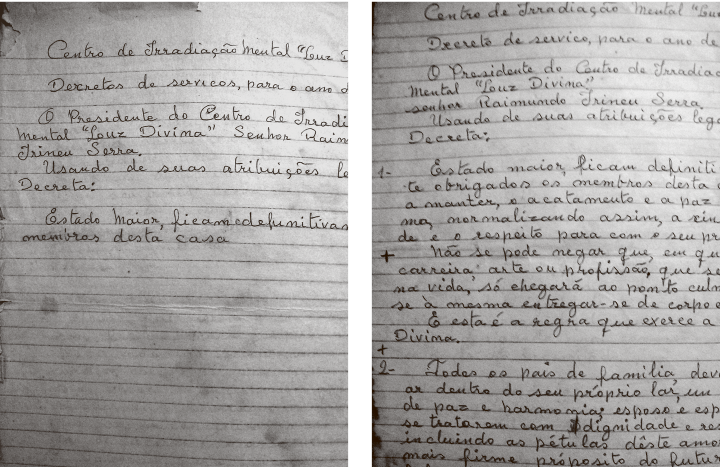 Centro de Irradiação Mental "Louz D
Decretos de servicos, para o ano d
O Presidente do Centro de Irradi
Mental "Louz Divina" Senhor Raim
Irineu Serra
Usando de suas atribuições le
Decreta:
Estado Maior, ficam definitivas
membros desta casa
Centro de Irradiação Mental "Lou
Decreto de servico, para o ano de
O Presidente do Centro de Irradia
Mental "Louz Divina"
senhor Raimundo Irineu Serra
Usando de suas atribuições lega
Decreta;
1- Estado maior, ficam definiti
te obrigados os membros desta c
a manter, o acatamento e a paz
ma, normalizando assim, a sin
de e o respeito para com o seu pr
+ Não se pode negar que, em qu
carreira, arte ou profissão, que se
na vida, só chegará ao ponto culm
se à mesma entregar-se de corpo e
E esta é a regra que exerce a
Divina.
+
2- Todos os pais de familia, deve
ar dentro do seu próprio lar, um
de paz e harmonia; esposo e esp
se tratarem com dignidade e res
incluindo as pétulas dêste amor
mais firme próposito do futur